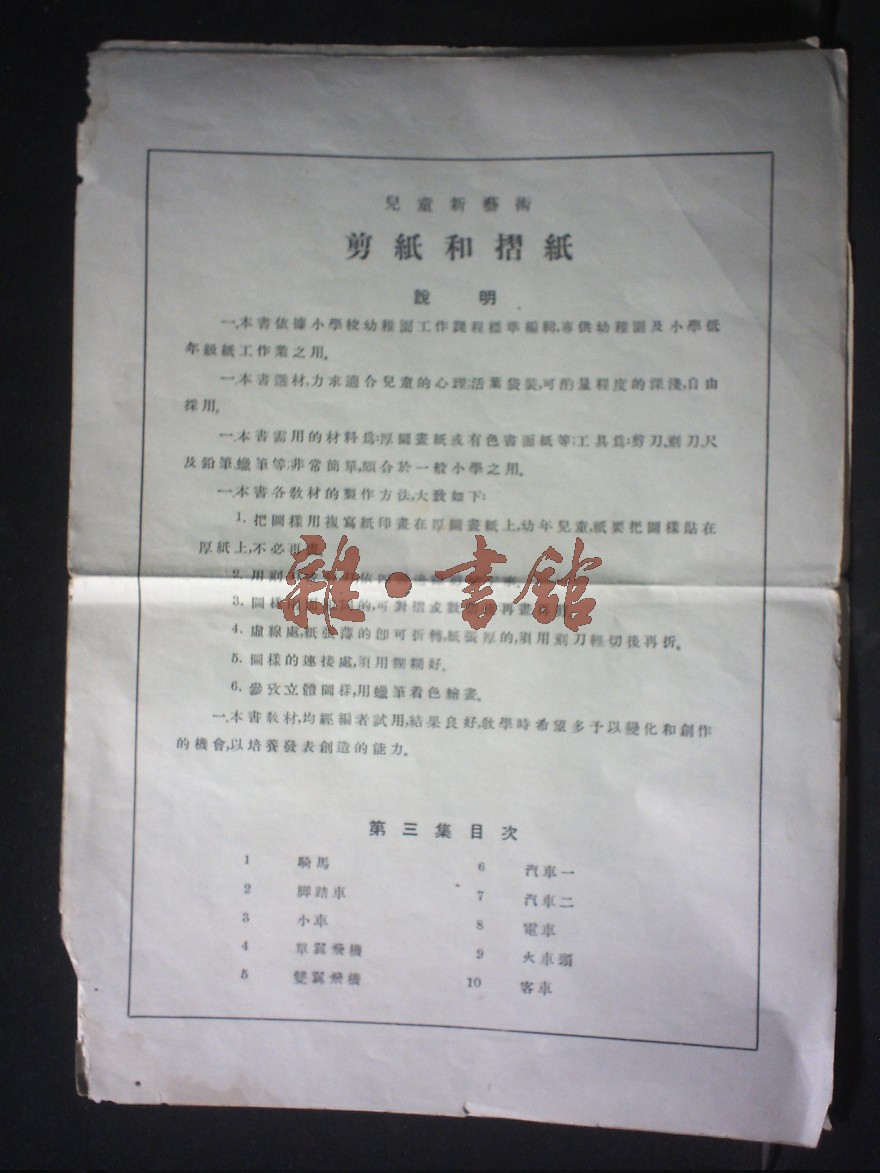 兒童新藝術
剪紙和摺紙
說 明
一.本書依據小學校幼稚園工作課程標準編輯,專供幼稚園及小學低
年級紙工作業之用。
一.本書選材,力求適合兒童的心理;活葉袋裝,可酌量程度的深淺,自由
採用。
一.本書需用的材料爲:厚圖畫紙或有色書面紙等;工具爲:剪刀、刻刀、尺
及鉛筆、蠟筆等;非常簡單,頗合於一般小學之用。
一.本書各敎材的製作方法,大致如下:
1. 把圖樣用複寫紙印畫在厚圖畫紙上,幼年兒童,紙要把圖樣貼在
厚紙上,不必再
2. 用
雜·書館
3. 圖樣 的,可對摺 再畫
4. 虛線處,紙張薄的卽可折轉,紙張厚的,須用刻刀輕切後再折。
5. 圖樣的連接處,須用糨糊好。
6. 參攷立體圖樣,用蠟筆着色繪畫。
一.本書敎材,均經編者試用,結果良好,敎學時希望多予以變化和創作
的機會,以培養發表創造的能力。
第三集目次
1 騎馬
2 脚踏車
3 小車
4 單翼飛機
5 雙翼飛機
6 汽車一
7 汽車二
8 電車
9 火車頭
10 客車